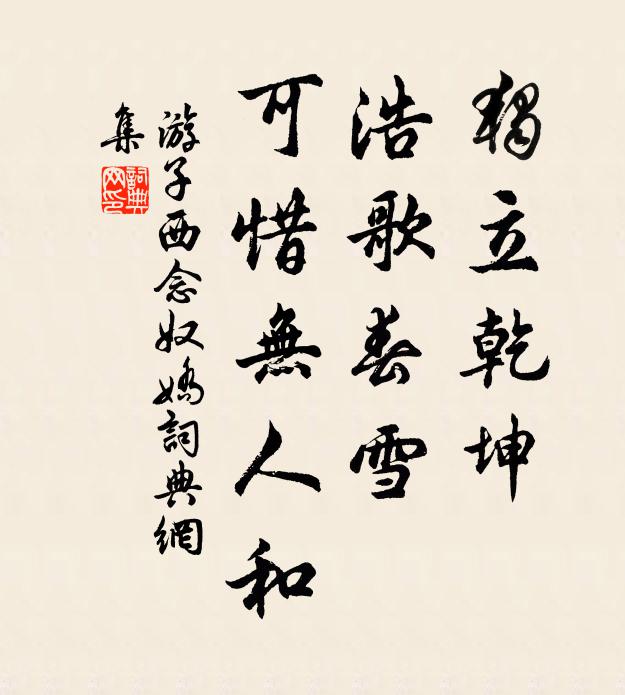 獨立乾坤
浩歌春雪
可惜無人和
游子西念奴嬌詞典網
集
詞典
網印